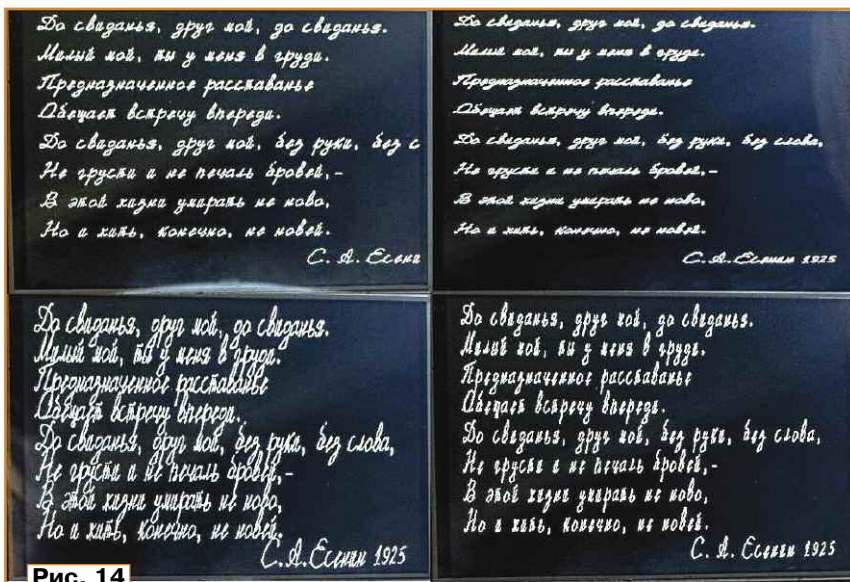 До свиданья, друг мой, до свиданья.
Милый мой, ты у меня в груди.
Предназначенное расставанье
Обещает встречу впереди.
До свиданья, друг мой, без руки, без с
Не грусти и не печаль бровей,-
В этой жизни умирать не ново,
Но и жить, конечно, не новей.
С. А. Есени
До свиданья, друг мой, до свиданья.
Милый мой, ты у меня в груди.
Предназначенное расставанье
Обещает встречу впереди.
До свиданья, друг мой, без руки, без слова,
Не грусти и не печаль бровей,-
В этой жизни умирать не ново,
Но и жить, конечно, не новей.
С. А. Есенин 1925
До свиданья, друг мой, до свиданья.
Милый мой, ты у меня в груди.
Предназначенное расставанье
Обещает встречу впереди.
До свиданья, друг мой, без руки, без слова,
Не грусти и не печаль бровей,-
В этой жизни умирать не ново,
Но и жить, конечно, не новей.
С. А. Есенин 1925
До свиданья, друг мой, до свиданья.
Милый мой, ты у меня в груди.
Предназначенное расставанье
Обещает встречу впереди.
До свиданья, друг мой, без руки, без слова,
Не грусти и не печаль бровей,-
В этой жизни умирать не ново,
Но и жить, конечно, не новей.
С. А. Есенин 1925
Рис. 14